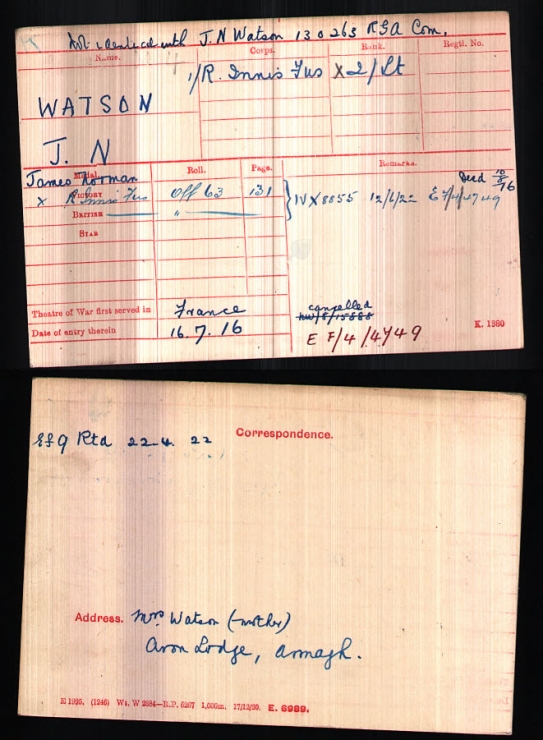 Not identical with J. N Watson 130263 RGA Com.
Name. Corps. Rank. Regtl. No.
1/R. Innis Fus X 2/Lt
WATSON
J. N
James Norman
Medal. Roll. Page. Remarks.
Died 10/8/16
X Victory R Innis Fus Off 63 131
British "
IV X 8855 12/6/22 E F/4/4749
Star
Theatre of War first served in France
Date of entry therein 16.7.16
cancelled
E F/4/4749
K. 1380
EF9 Rtd 22.4.22
Correspondence.
Address. Mrs Watson (mother)
Avon Lodge, Armagh.
E 1925. (1246) Wt. W 2884—R.P. 6267 1,000m. 17/12/20. E. 6989.